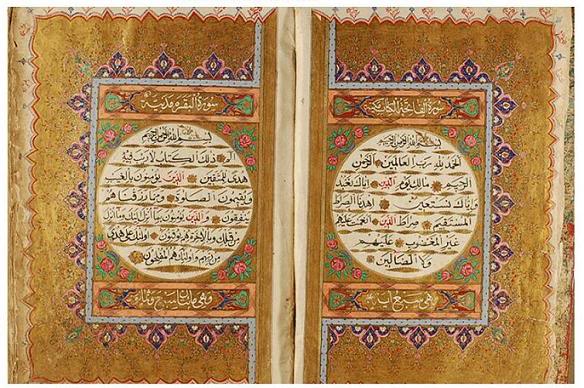 سورة الفاتحة الكتاب مكية
بسم الله الرحمن الرحيم
الحمد لله رب العالمين الرحمن
الرحيم مالك يوم الدين اياك نعبد
واياك نستعين اهدنا الصراط
المستقيم صراط الذين انعمت عليهم
غير المغضوب عليهم
ولا الضالين
وهي سبع آيات
سورة البقرة مدنية
بسم الله الرحمن الرحيم
الم ذلك الكتاب لا ريب فيه
هدى للمتقين الذين يؤمنون بالغيب
ويقيمون الصلوة ومما رزقناهم
ينفقون والذين يؤمنون بما انزل اليك وما انزل
من قبلك وبالآخرة هم يوقنون اولئك على هدى
من ربهم واولئك هم المفلحون
وهي مائتان